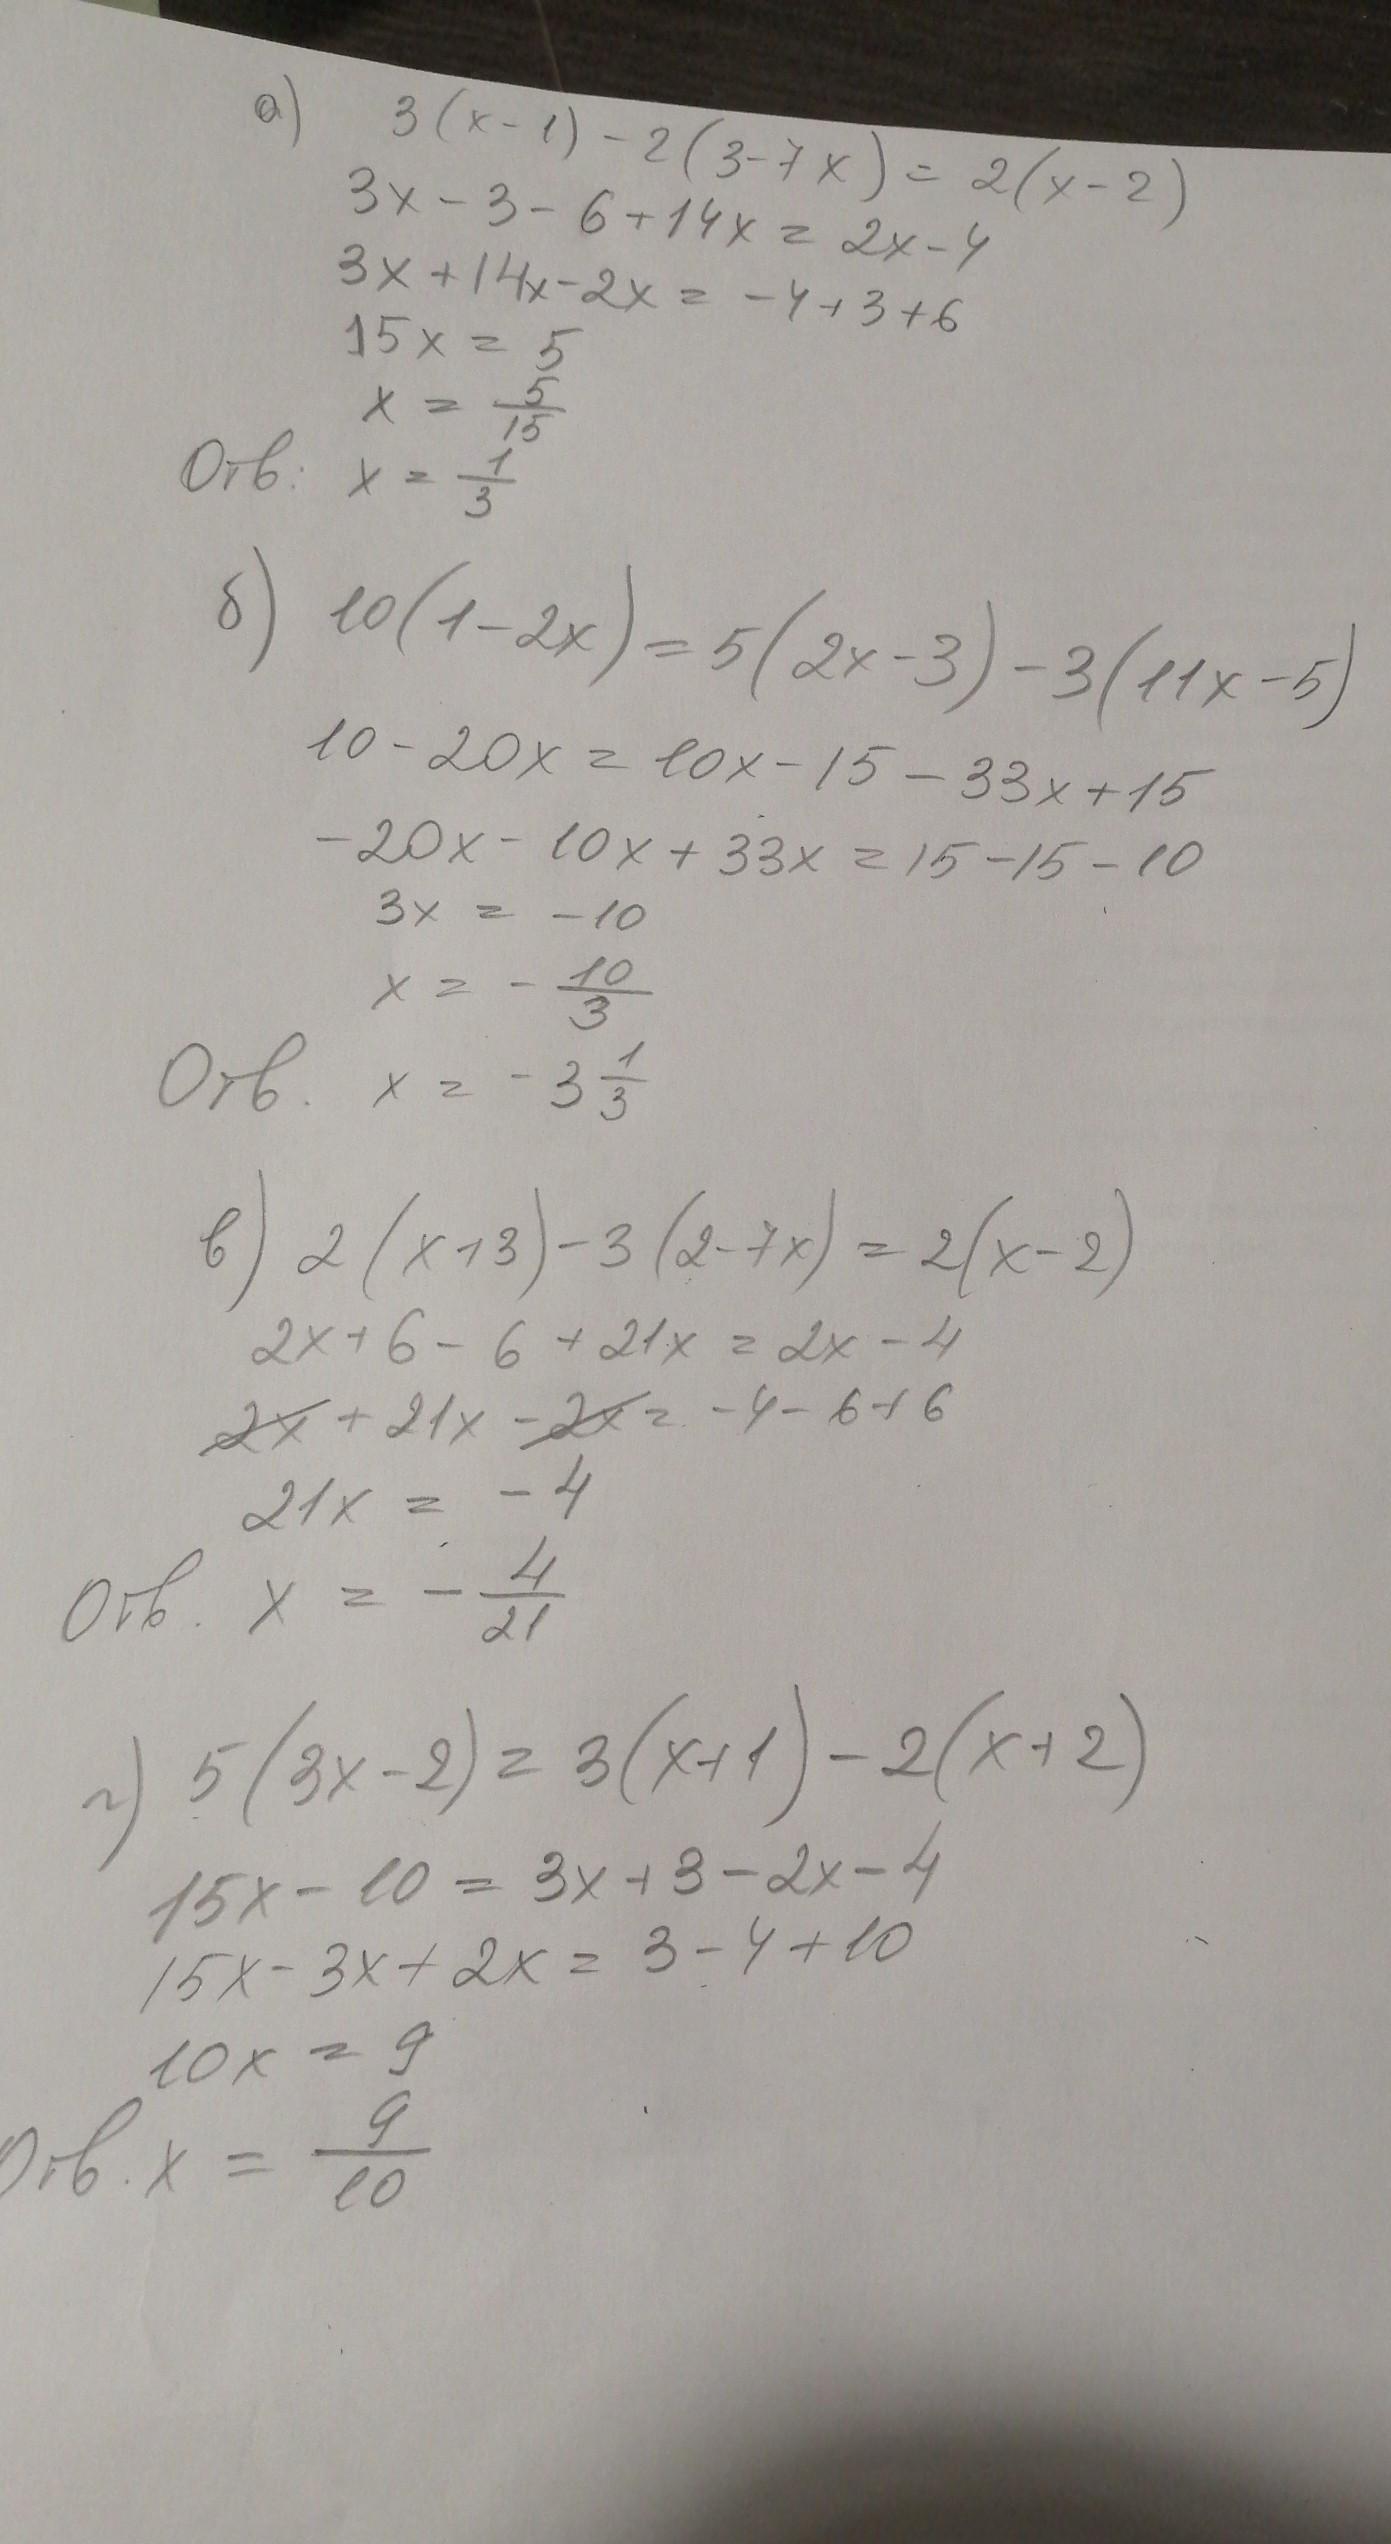 а) 3(x-1)-2(3-7x)=2(x-2)
3x-3-6+14x=2x-4
3x+14x-2x=-4+3+6
15x=5
x=5/15
Отв: x=1/3
б) 10(1-2x)=5(2x-3)-3(11x-5)
10-20x=10x-15-33x+15
-20x-10x+33x=15-15-10
3x=-10
x=-10/3
Отв. x=-3 1/3
в) 2(x+3)-3(2-7x)=2(x-2)
2x+6-6+21x=2x-4
2x+21x-2x=-4-6+6
21x=-4
Отв. x=-4/21
г) 5(3x-2)=3(x+1)-2(x+2)
15x-10=3x+3-2x-4
15x-3x+2x=3-4+10
10x=9
Отв. x=9/10